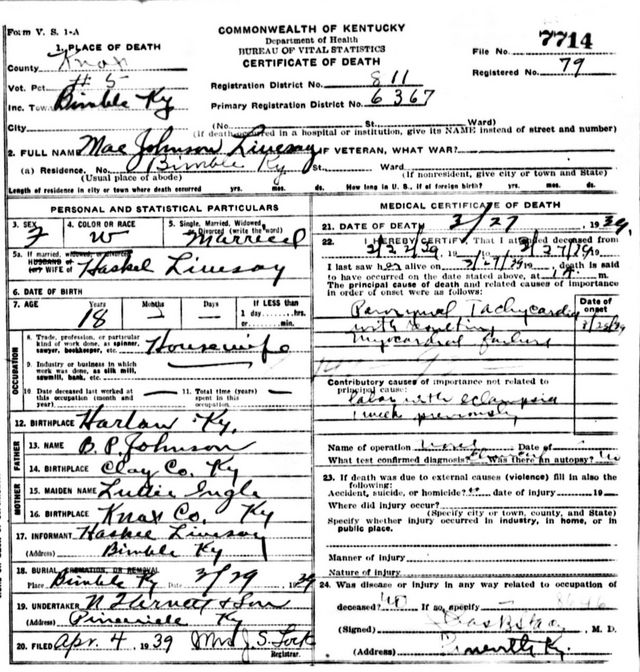 Form V. S. 1-A
COMMONWEALTH OF KENTUCKY
Department of Health
BUREAU OF VITAL STATISTICS
CERTIFICATE OF DEATH
File No. 7714
Registered No. 79
1. PLACE OF DEATH
County Knox
Vot. Pct #5
Inc. Town Bimble Ky
City
Registration District No. 811
Primary Registration District No. 6367
(No. St. Ward)
(If death occurred in a hospital or institution, give its NAME instead of street and number)
2. FULL NAME Mae Johnson Livesay IF VETERAN, WHAT WAR?
(a) Residence. No. Bimble Ky St. Ward
(Usual place of abode) (If nonresident, give city or town and State)
Length of residence in city or town where death occurred yrs. mos. ds. How long in U. S., if of foreign birth? yrs. mos. ds.
PERSONAL AND STATISTICAL PARTICULARS
3. SEX F
4. COLOR OR RACE W
5. Single, Married, Widowed or Divorced (write the word) Married
5a. If married, widowed, or divorced
HUSBAND of
(or) WIFE of Haskel Livesay
6. DATE OF BIRTH
7. AGE Years Months Days If LESS than
18 1 day, hrs.
or min.
OCCUPATION
8. Trade, profession, or particular
kind of work done, as spinner,
sawyer, bookkeeper, etc. Housewife
9. Industry or business in which
work was done, as silk mill,
sawmill, bank, etc.
10. Date deceased last worked at
this occupation (month and
year)
11. Total time (years)
spent in this
occupation
12. BIRTHPLACE Harlan Ky.
FATHER
13. NAME B. P. Johnson
14. BIRTHPLACE Clay Co. Ky
MOTHER
15. MAIDEN NAME Ingle
16. BIRTHPLACE Knox Co. Ky
17. INFORMANT Haskel Livesay
(Address) Bimble Ky
18. BURIAL, CREMATION, OR REMOVAL
Place Bimble Ky Date 3/29 1939
19. UNDERTAKER & Son
(Address) Pineville Ky
20. FILED Apr. 4 1939 Mrs J. S. Lock
Registrar.
MEDICAL CERTIFICATE OF DEATH
21. DATE OF DEATH 3/27 1939
22. I HEREBY CERTIFY, That I attended deceased from
19 to 19
I last saw her alive on 19 death is said
to have occurred on the date stated above, at m.
The principal cause of death and related causes of importance
in order of onset were as follows:
Date of onset
Paroxysmal Tachycardia
with resulting
myocardial failure
Contributory causes of importance not related to
principal cause:
labor with eclampsia
1 week previously
Name of operation none Date of
What test confirmed diagnosis? Was there an autopsy? no
23. If death was due to external causes (violence) fill in also the
following:
Accident, suicide, or homicide? date of injury 19
Where did injury occur?
(Specify city or town, county, and State)
Specify whether injury occurred in industry, in home, or in
public place.
Manner of injury
Nature of injury
24. Was disease or injury in any way related to occupation of
deceased? no If so, specify
(Signed) M. D.
(Address) Pineville Ky.